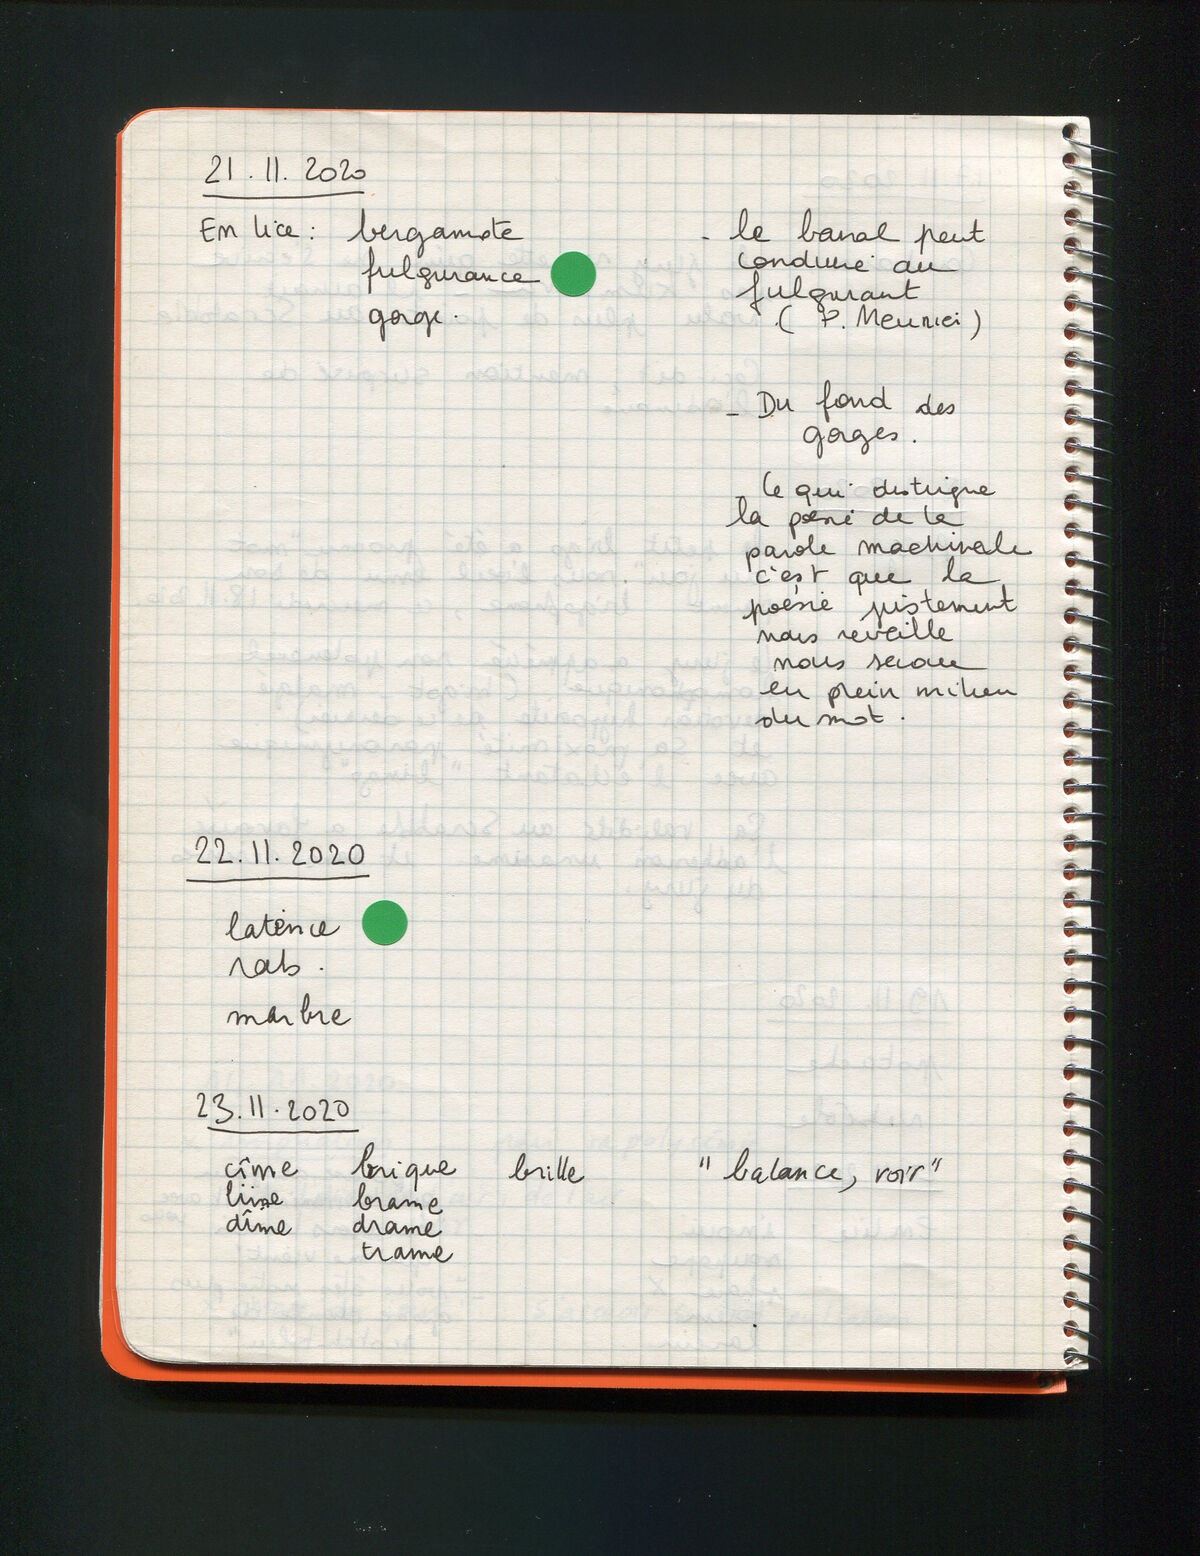 21.11.2020
En lice : bergamote
fulgurance
gorge.
- le banal peut
conduire au
fulgurant
(P. Meunier)
- Du fond des
gorges.
Ce qui distingue
la poésie de la
parole machinale
c'est que la
poésie justement
nous réveille
nous secoue
en plein milieu
du mot.
22.11.2020
latence
rab.
marbre
23.11.2020
cîme brique brille "balance, voir"
lime brame
dîme drame
trame